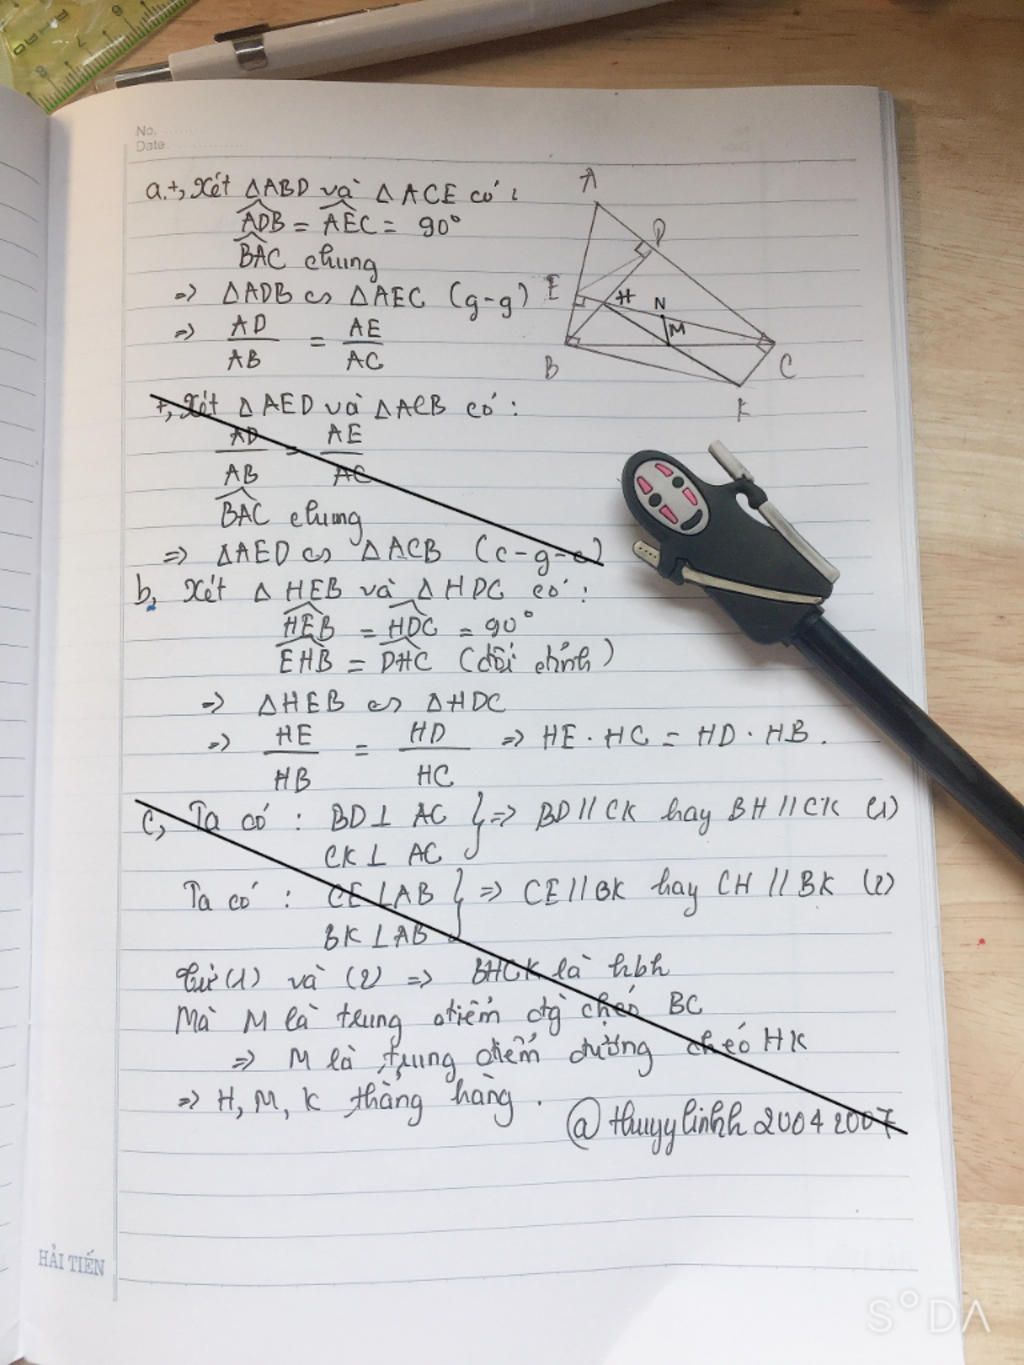 No.
Date
a.+, Xét △ABD và △ACE có:
ADB = AEC = 90°
BAC chung
=> △ADB ∽ △AEC (g-g)
=> AD/AB = AE/AC
A
D
E
H
N
M
B
C
K
+, Xét △AED và △ACB có:
AD/AB = AE/AC
BAC chung
=> △AED ∽ △ACB (c-g-c)
b, Xét △HEB và △HDC có:
HEB = HDC = 90°
EHB = DHC (đối đỉnh)
=> △HEB ∽ △HDC
=> HE/HB = HD/HC => HE . HC = HD . HB .
c, Ta có : BD⊥ AC } => BD // CK hay BH // CK (1)
CK⊥ AC
Ta có : CE⊥AB } => CE // BK hay CH // BK (2)
BK⊥AB
Từ (1) và (2) => BHCK là hbh
Mà M là trung điểm đg chéo BC
=> M là trung điểm đường chéo HK
=> H, M, K thẳng hàng .
@thuyylinhh20042007
HẢI TIẾN
SODA